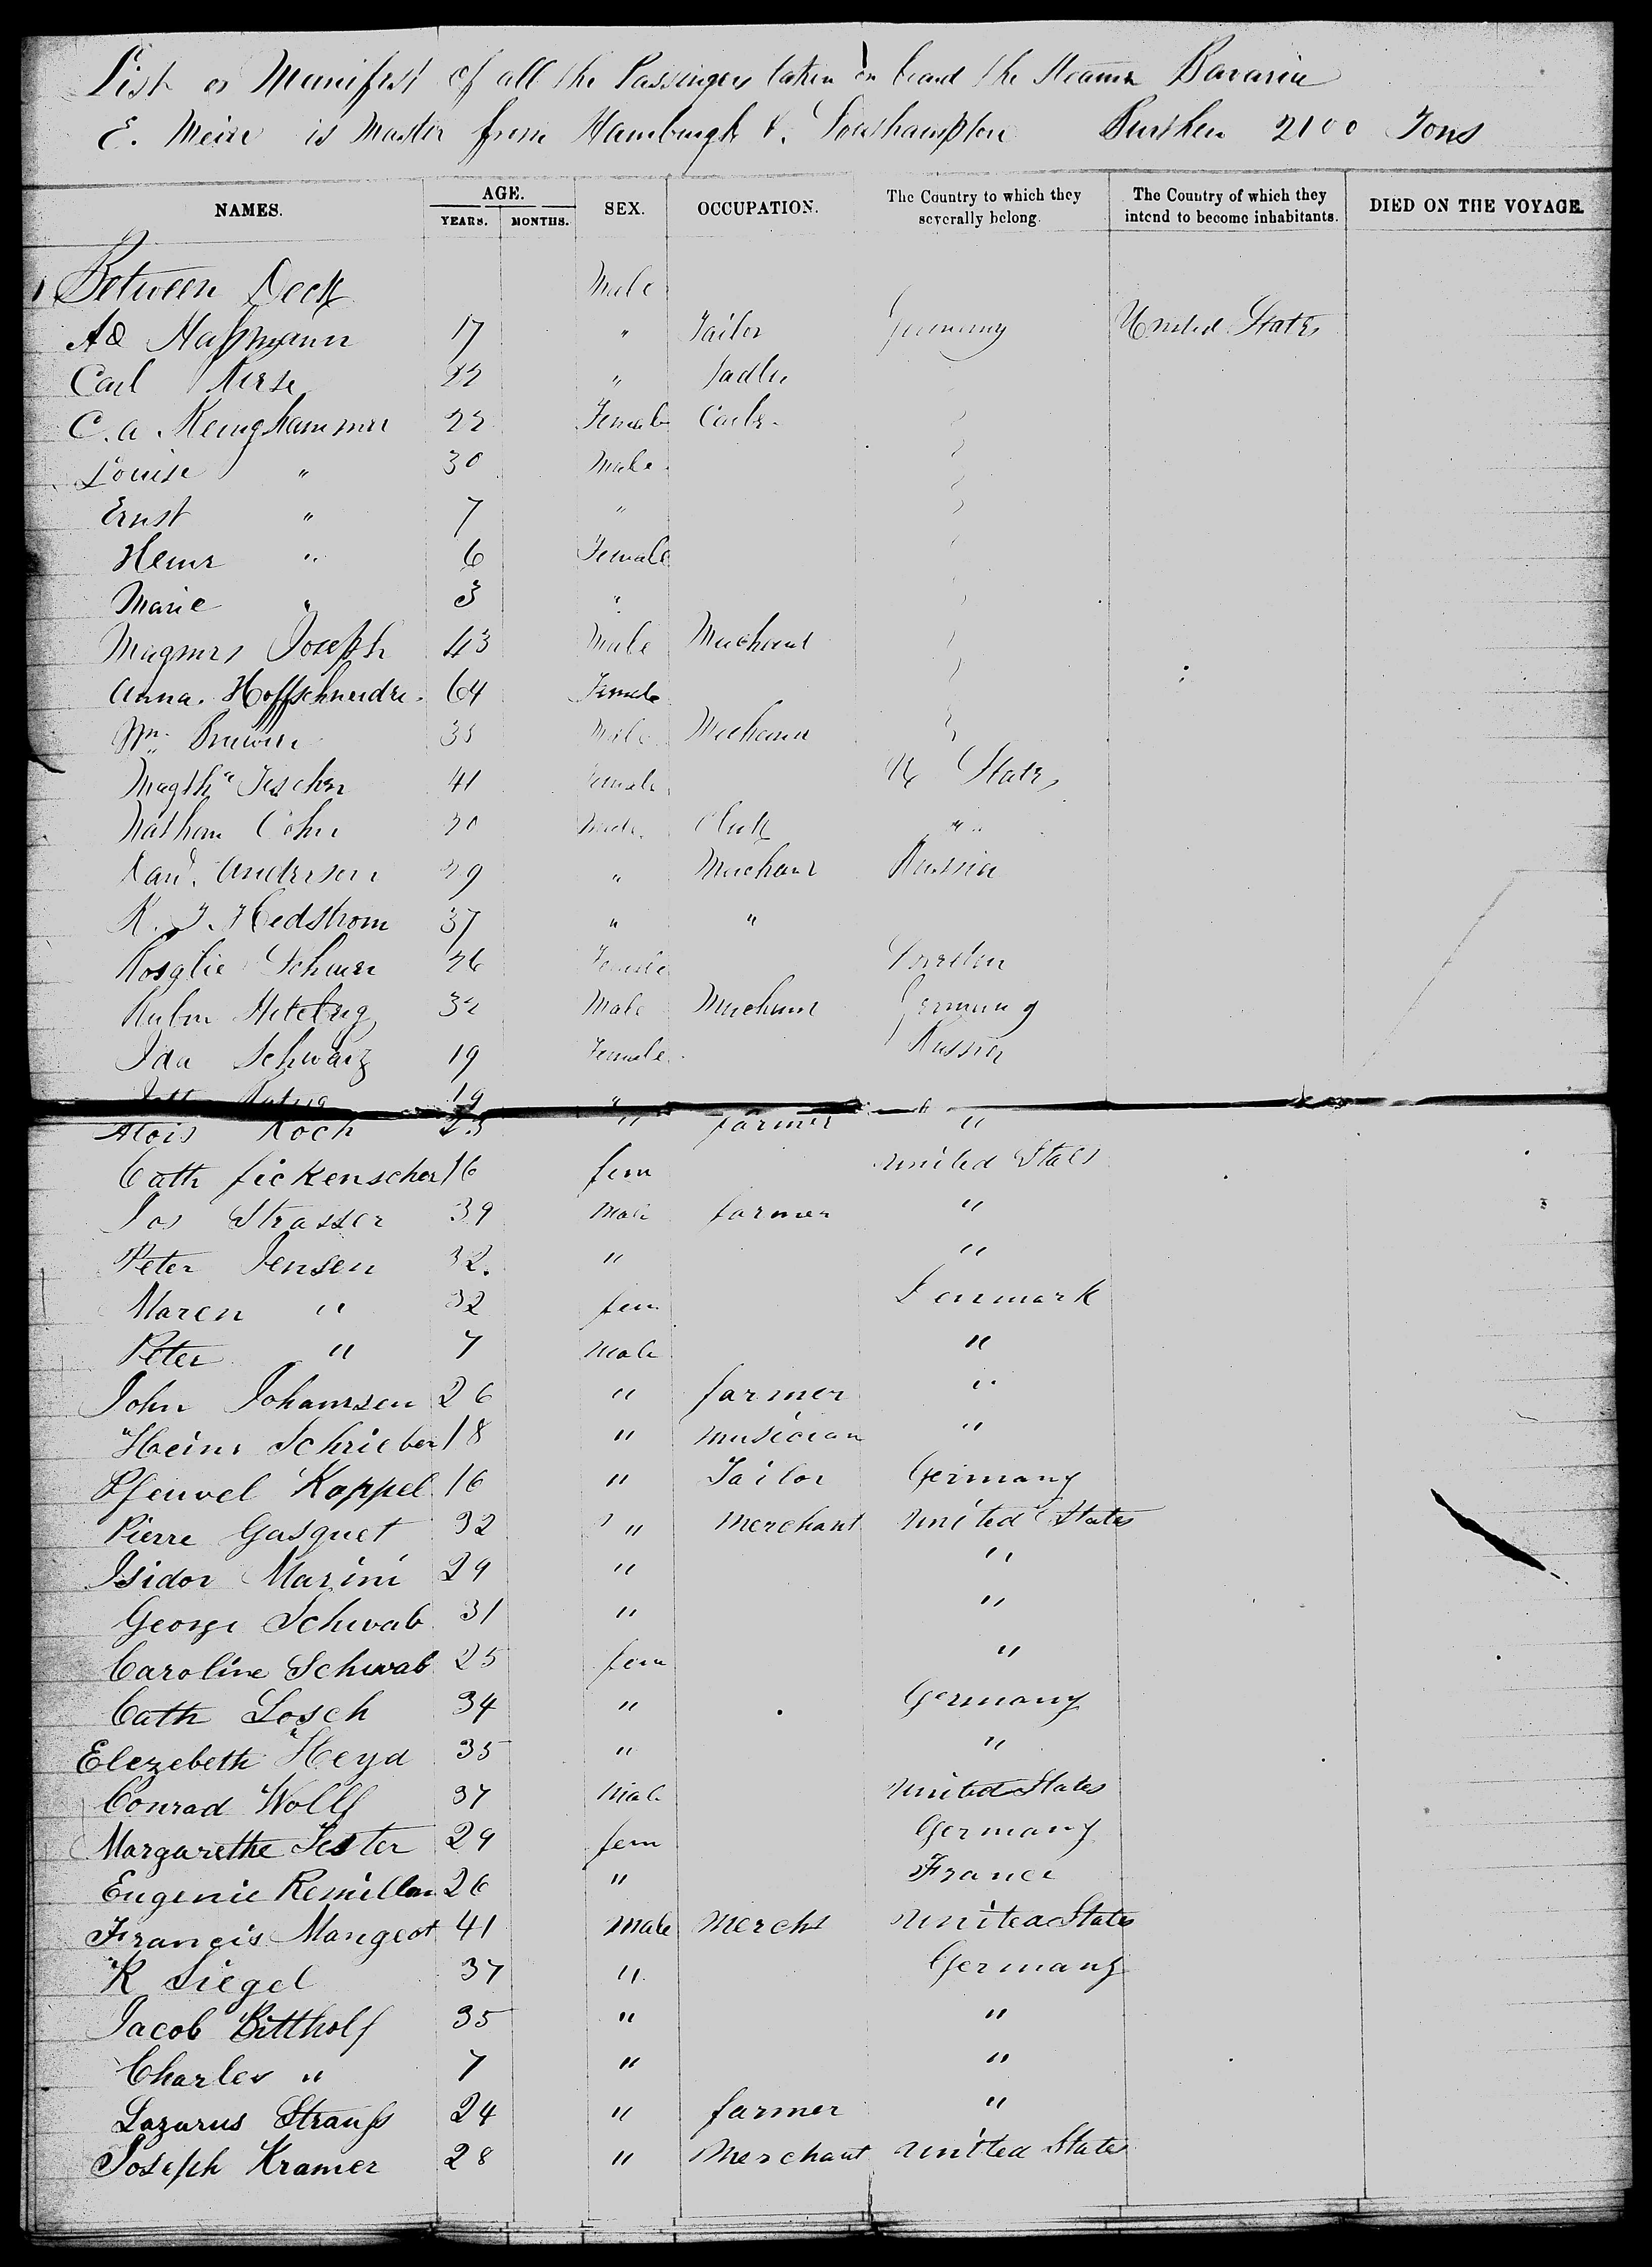 List or Manifest of all the Passengers taken on board the Steamer Bavaria
E. Meier is Master from Hamburgh & Southampton Burthen 2100 Tons
NAMES. AGE. YEARS. MONTHS. SEX. OCCUPATION. The Country to which they severally belong. The Country of which they intend to become inhabitants. DIED ON THE VOYAGE.
Between Deck Male
17 " Tailor Germany United States
Carl 22 " Sadler
C. a 22 Female
Louise " 30 Male
Ernst " 7 "
Heinr " 6 Female
Marie " 3 "
Magnus Joseph 43 Male Merchant
Anna Hoffschneider 64 Female
Wm 35 Male Merchant
41 Female U States
Nathan Cohn 20 Male Clerk " "
Anderson 29 " Merchant Russia
K. J. Hedstrom 37 " "
Rosalie 26 Female Sweden
32 Male Merchant Germany
Ida Schwarz 19 Female Russia
19 "
Alois Koch 25 " farmer "
Cath fickenscher 16 fem united States
Jos Strasser 39 Male farmer "
Peter Jensen 32. " "
Maren " 32 fem Denmark
Peter " 7 Male "
John Johannsen 26 " farmer "
Heinr Schrieber 18 " musician "
Koppel 16 " Tailor Germany
Pierre Gasquet 32 " Merchant united States
Isidor Marini 29 " "
George Schwab 31 " "
Caroline Schwab 25 fem "
Cath Losch 34 " Germany
Elezebeth Heyd 35 " "
Conrad Wolff 37 Male united States
Margarethe Tester 29 fem Germany
Eugenie Remillon 26 " France
Francis Mangeot 41 Male Mercht united States
K Siegel 37 " Germany
Jacob Bittholf 35 " "
Charles " 7 " "
Lazarus Strauss 24 " farmer "
Joseph Kramer 28 " Merchant united States